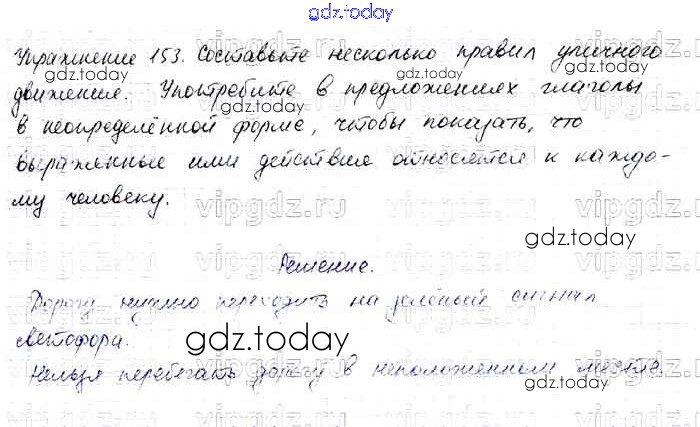 gdz.today
Упражнение 153. Составьте несколько правил уличного
gdz.today gdz.today
движения. Употребите в предложениях глаголы
в неопределённой форме, чтобы показать, что
vipgdz.ru gdz.today vipgdz.ru
выраженные ими действия относятся к каждо-
му человеку.
vipgdz.ru vipgdz.ru
gdz.today
Решение.
vipgdz.ru vipgdz.ru
Дорогу нужно переходить на зелёный сигнал
светофора.
gdz.today gdz.today
Нельзя перебегать дорогу в неположенном месте.
vipgdz.ru gdz.today